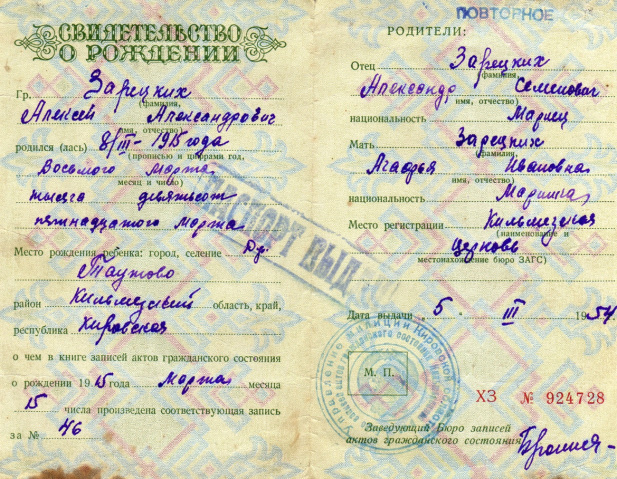 СВИДЕТЕЛЬСТВО
О РОЖДЕНИИ
Гр. Зарецких
(фамилия,
Алексей Александрович
имя, отчество)
родился (лась) 8/III – 1915 года
(прописью и цифрами год,
Восьмого Марта
месяц и число)
тысяча девятьсот
пятнадцатого марта
Место рождения ребенка: город, селение Д.
Таутово
район Кильмезский область, край,
республика Кировская
о чем в книге записей актов гражданского состояния
о рождении 1915 года Марта месяца
15 числа произведена соответствующая запись
за № 46
ПАСПОРТ ВЫДАН
ПОВТОРНОЕ
РОДИТЕЛИ:
Отец Зарецких
(фамилия,
Александр Семенович
имя, отчество)
национальность Мариец
Мать Зарецких
(фамилия,
Агафья Ивановна
имя, отчество)
национальность Марийка
Место регистрации Кильмезская
(наименование и
церковь
местонахождение бюро ЗАГС)
Дата выдачи „ 5 " III 1954
М. П.
ХЗ № 924728
Заведующий Бюро записей
актов гражданского состояния